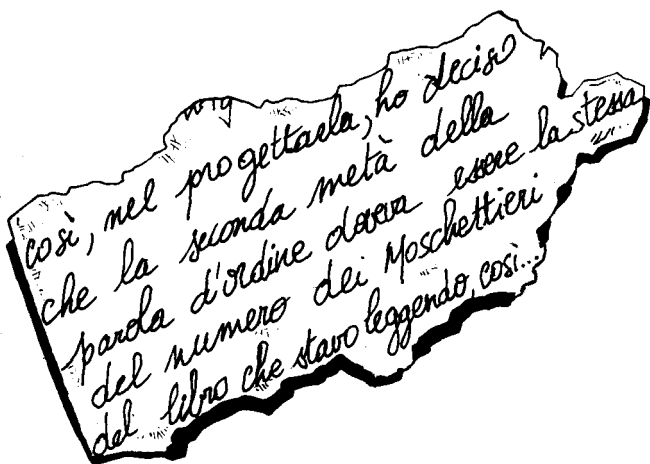 così, nel progettarla, ho deciso
che la seconda metà della
parola d'ordine doveva essere la stessa
del numero dei Moschettieri
del libro che stavo leggendo, così...